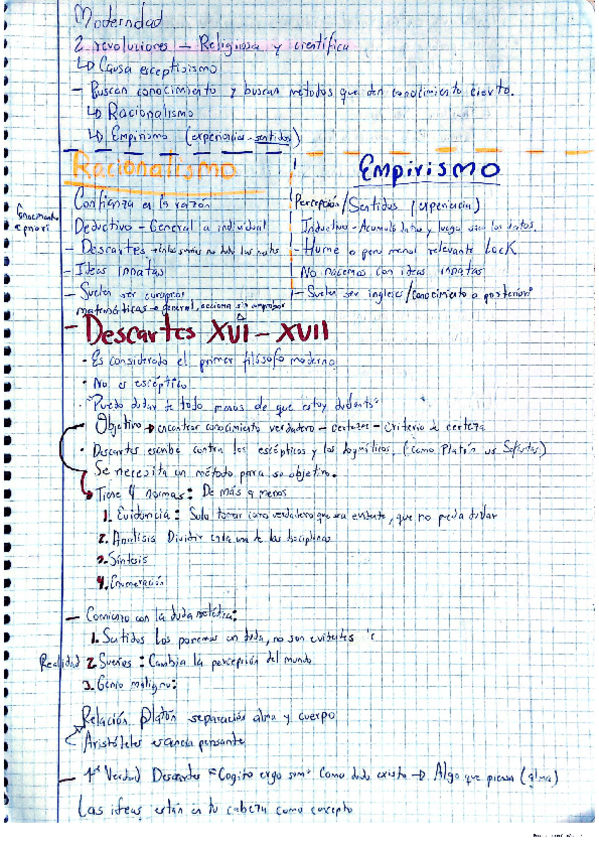 Modernidad
2 revoluciones – Religiosa y científica
↳ Causa escepticismo
– Buscan conocimiento y buscan métodos que den conocimiento cierto.
↳ Racionalismo
↳ Empirismo (experiencia – sentidos)
Racionalismo
Confianza en la razón
Deductivo – General a individual
– Descartes
– Ideas Innatas
– Suelen ser europeos
matemáticas → general, sin comprobar
Empirismo
Percepción/Sentidos (experiencia)
Inductivo – Acumula datos y luego
– Hume o pero menos relevante Lock
No nacemos con ideas innatas
– Suelen ser ingleses/conocimiento a posteriori
– Descartes XVI – XVII
· Es considerado el primer filósofo moderno
· No es escéptico
· "Puedo dudar de todo menos de que estoy dudando"
Objetivo → encontrar conocimiento verdadero – certezas – criterio de certeza
· Descartes escribe contra los escépticos y los dogmáticos. (como Platón vs Sofistas)
Se necesita un método para su objetivo.
↳ Tiene 4 normas: De más a menos
1. Evidencia: Solo tomar como verdadero que sea evidente, que no pueda dudar
2. Análisis Dividir cada una de las
3. Síntesis
4. Enumeración
– Comienza con la duda metódica:
1. Sentidos Los ponemos en duda, no son evidentes
Realidad 2. Sueños: Cambia la percepción del mundo
3. Genio maligno:
Relación Platón separación alma y cuerpo
Aristóteles esencia pensante
– 1ª Verdad Descartes "Cogito ergo sum" Como dudo existo → Algo que piensa (alma)
Las ideas están en tu cabeza como concepto